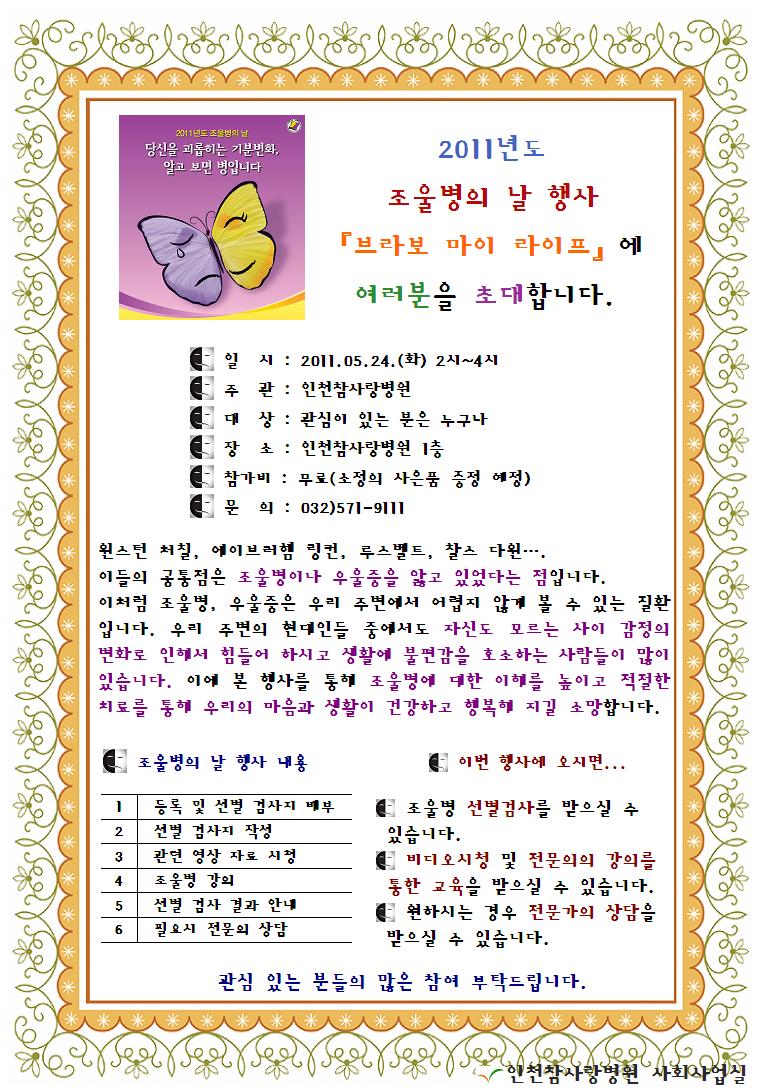 2011년도 조울병의 날
당신을 괴롭히는 기분변화,
알고 보면 병입니다
2011년도
조울병의 날 행사
『브라보 마이 라이프』에
여러분을 초대합니다.
일 시 : 2011.05.24.(화) 2시~4시
주 관 : 인천참사랑병원
대 상 : 관심이 있는 분은 누구나
장 소 : 인천참사랑병원 1층
참가비 : 무료(소정의 사은품 증정 예정)
문 의 : 032)571-9111
윈스턴 처칠, 에이브러햄 링컨, 루스벨트, 찰스 다윈….
이들의 공통점은 조울병이나 우울증을 앓고 있었다는 점입니다.
이처럼 조울병, 우울증은 우리 주변에서 어렵지 않게 볼 수 있는 질환
입니다. 우리 주변의 현대인들 중에서도 자신도 모르는 사이 감정의
변화로 인해서 힘들어 하시고 생활에 불편감을 호소하는 사람들이 많이
있습니다. 이에 본 행사를 통해 조울병에 대한 이해를 높이고 적절한
치료를 통해 우리의 마음과 생활이 건강하고 행복해 지길 소망합니다.
조울병의 날 행사 내용
1 등록 및 선별 검사지 배부
2 선별 검사지 작성
3 관련 영상 자료 시청
4 조울병 강의
5 선별 검사 결과 안내
6 필요시 전문의 상담
이번 행사에 오시면...
조울병 선별검사를 받으실 수
있습니다.
비디오시청 및 전문의의 강의를
통한 교육을 받으실 수 있습니다.
원하시는 경우 전문가의 상담을
받으실 수 있습니다.
관심 있는 분들의 많은 참여 부탁드립니다.
인천참사랑병원 사회사업실